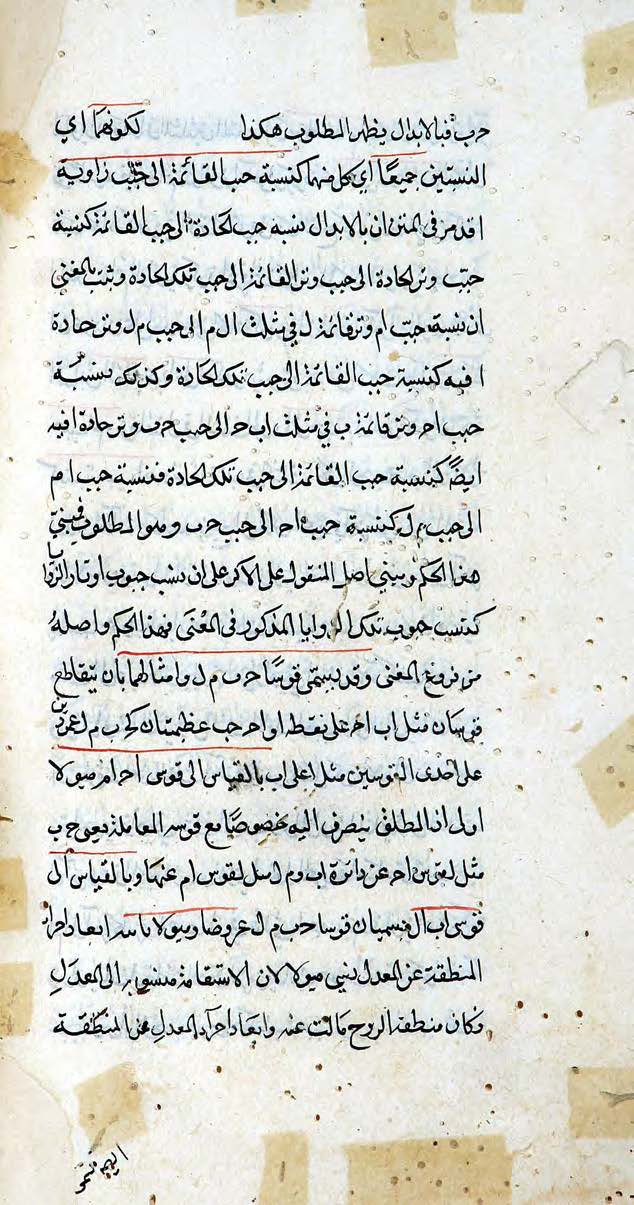 حرب فبالابدال يظهر المطلوب هكذا لكونهما اي
النسبتين جميعا اي كل منهما كنسبة جيب القائمة الى جيب زاوية
ا قد مر في المتن ان بالابدال نسبة جيب الحادة الى جيب القائمة كنسبة
جيب وتر الحادة الى جيب وتر القائمة الى جيب تلك الحادة وثبت بالمغني
ان نسبة جيب ام وتر قائمة ل في مثلث ال م الى جيب م ل وتر حادة
ا فيه كنسبة جيب القائمة الى جيب تلك الحادة وكذلك نسبة
جيب اح وتر قائمة ب في مثلث اب ح الى جيب ح ب وتر حادة ا فيه
ايضا كنسبة جيب القائمة الى جيب تلك الحادة فنسبة جيب ام
الى جيب م ل كنسبة جيب اح الى جيب ح ب وهو المطلوب
هذا الحكم ومبني اصل المنقول على الاكر على ان نسب جيوب اوتار الزوايا
كنسب جيوب تلك الزوايا المذكور في المغني فهذا الحكم واصله
من فروع المغني وقد يسمى قوسا ح ب م ل وامثالهما بان يتقاطع
قوسان مثل اب اح على نقطة ا و عظيمتان كح ب م ل عمودين
على احدى القوسين مثل اعلى اب بالقياس الى قوس اح ام ميولا
اولى اذ المطلق ينصرف اليه خصوصا مع قوسه المعاملة يعني ح ب
مثل لقوس اح عن دائرة اب وم ل ميل لقوس ام عنها وبالقياس الى
قوسي اب ال يسميان قوسا ح ب م ل عروضا وميولا ابعاد اجزاء
المنطقة عن المعدل يسمى ميولا لان الاستقامة منسوبة الى المعدل
فكان منطقة البروج مالت عنه وابعاد اجزاء المعدل عن المنطقة